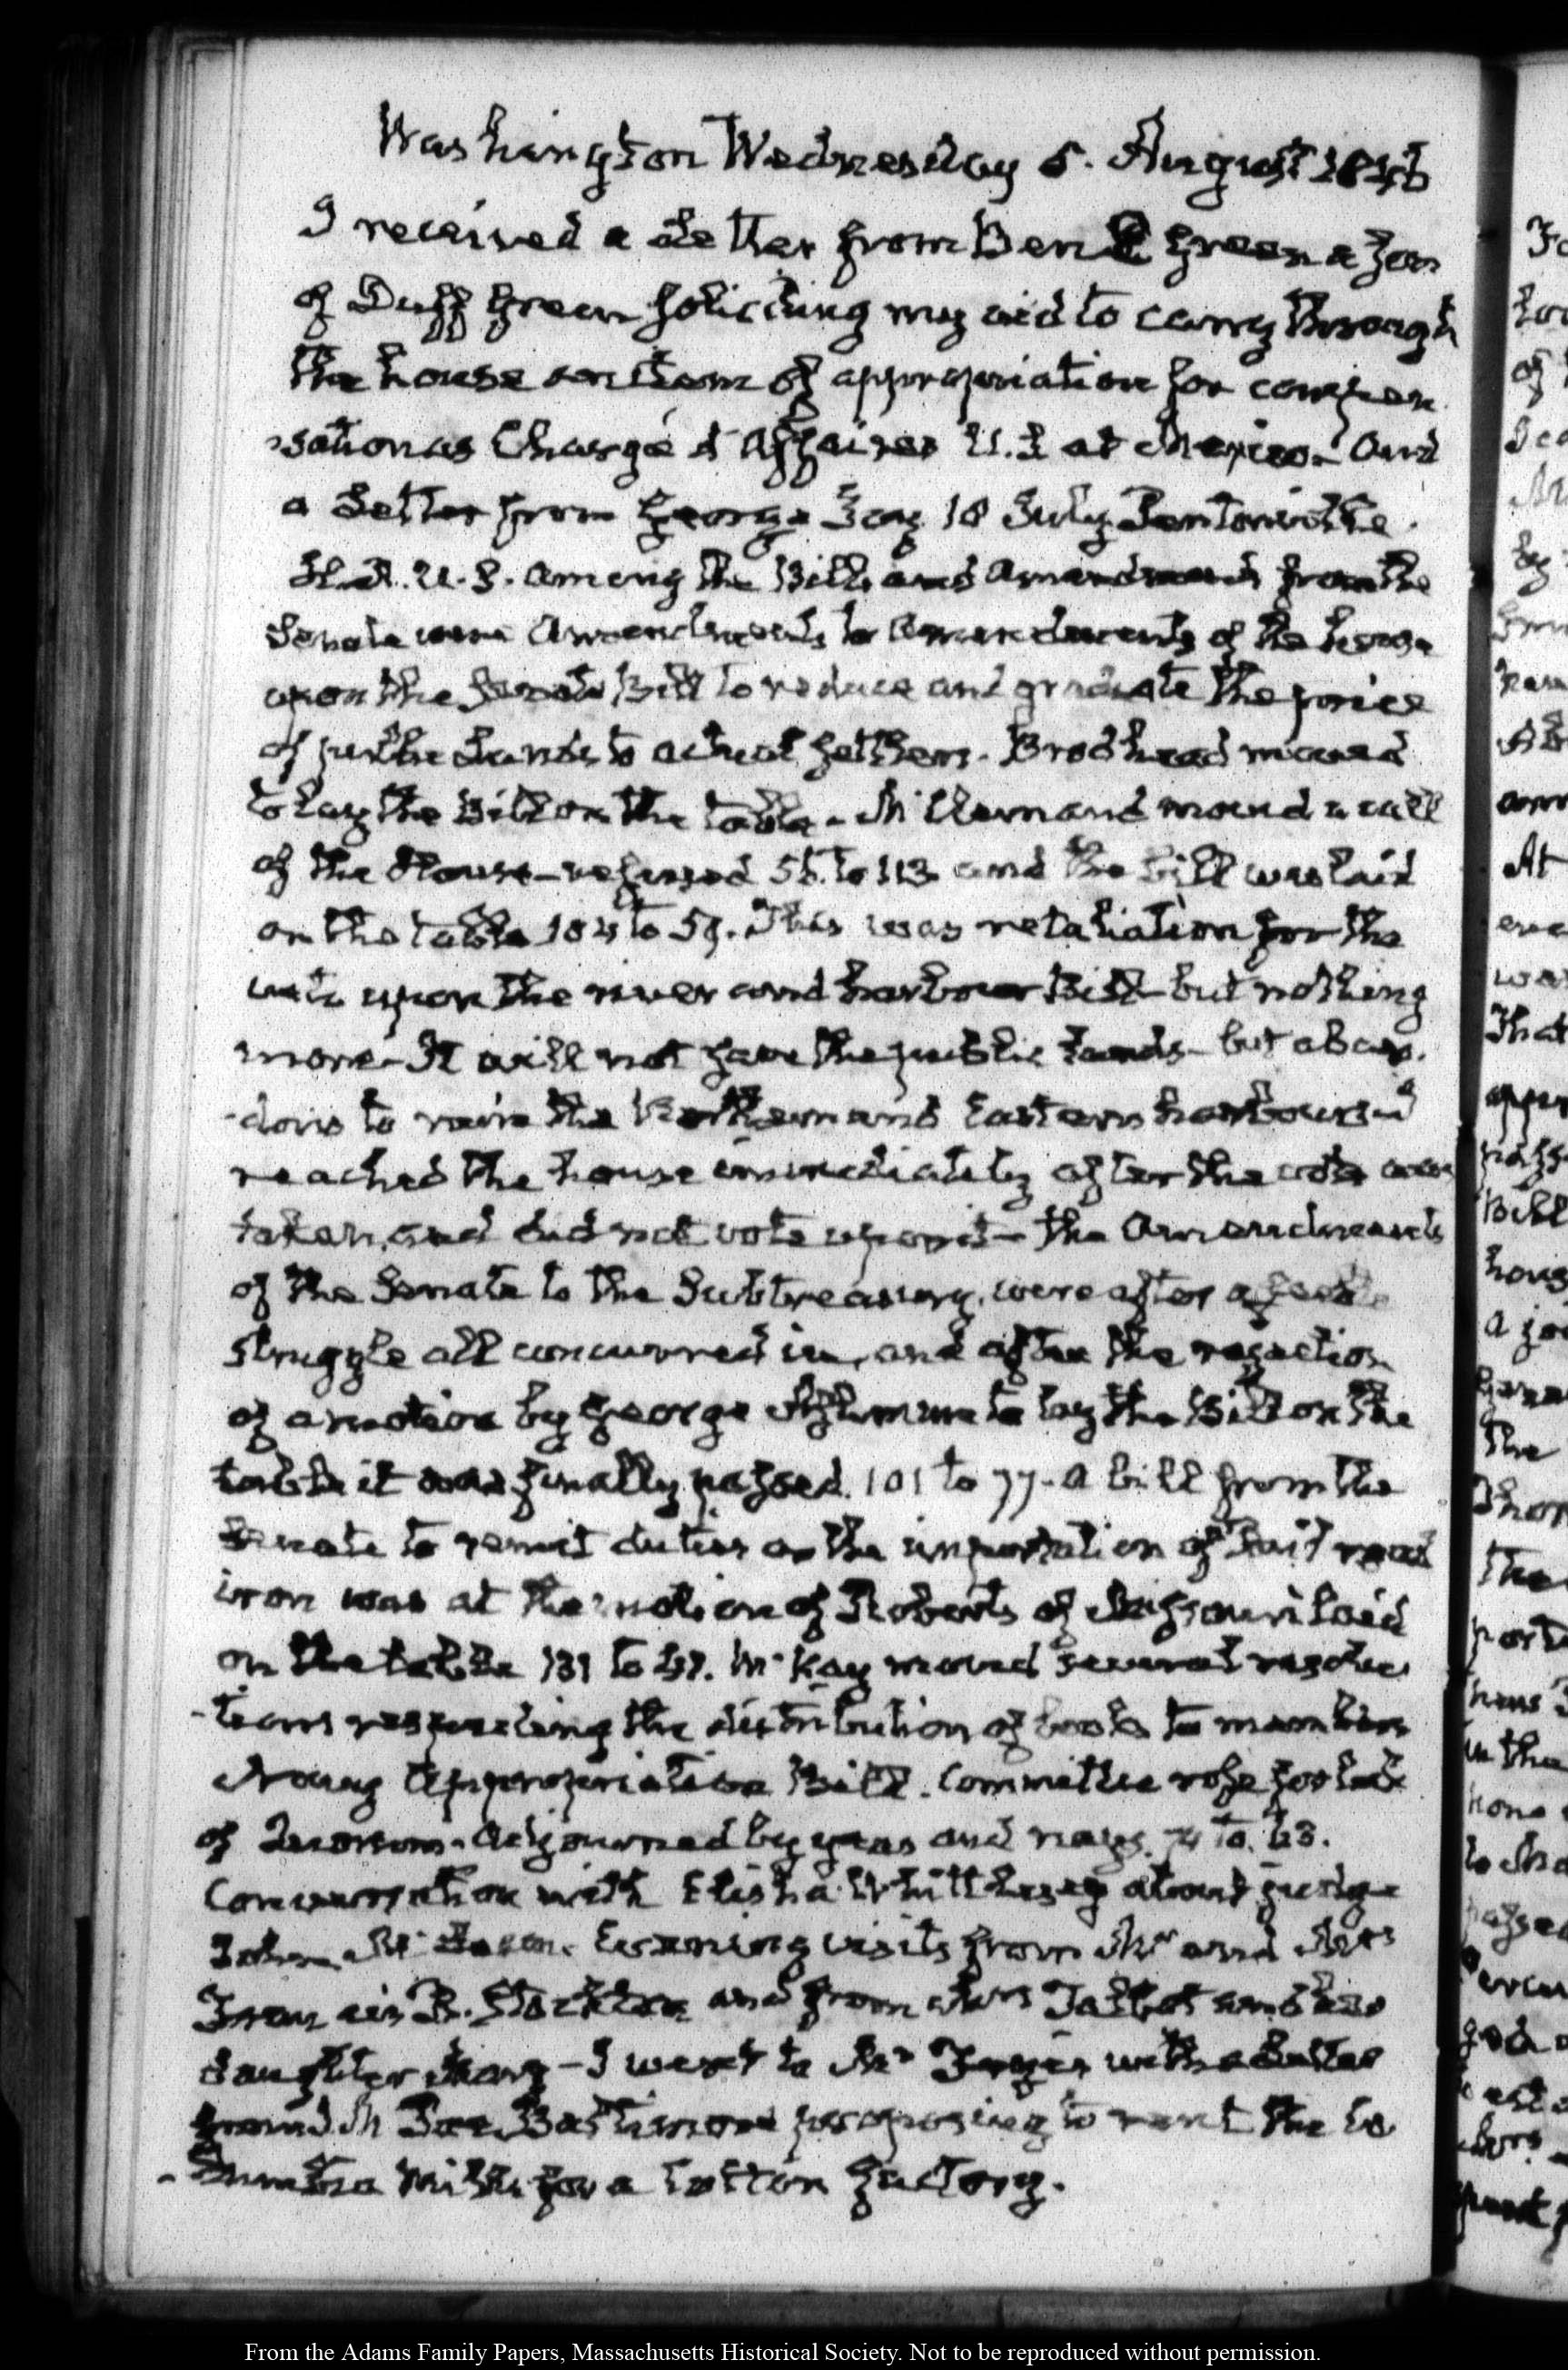 Washington Wednesday 5. August 1846
I received a letter from Ben E Green a son
of Duff Green soliciting my aid to carry through
the house an item of appropriation for compen
-sation as Chargé d'Affaires U.S at Mexico. And
a letter from George Jay 18 July
H.R. U.S. among the Bills and Amendments from the
Senate were Amendments to Amendments of the house
upon the Senate Bill to reduce and graduate the price
of public Lands to actual settlers. Brodhead moved
to lay the Bill on the table - McClernand moved a call
of the House - refused 56 to 113 and the bill was laid
on the table 104 to 59. This was retaliation for the
vote upon the river and harbour Bill - but nothing
more - It will not save the public lands - but
to ruin the Northern and Eastern harbours - I
reached the house immediately after the vote was
taken, and did not vote upon it - the Amendments
of the Senate to the Subtreasury, were after a feeble
struggle all concurred in, and after the rejection
of a motion by George Ashmun to lay the Bill on the
table it was finally passed. 101 to 77 - A bill from the
Senate to remit duties on the importation of rail road
iron was at the motion of of Missouri laid
on the table to McKay moved several resolu
-tions respecting the distribution of books to members
Navy Appropriation Bill. Committee rose for lack
of Quorum - Adjourned by yeas and nays. 74 to 63.
Conversation with Elisha Whittlesey about judge
John McLean. Evening visits from Mr and Mrs
Francis B. Stockton and from Mrs Talbot and her
daughter Mary - I went to Mr with a letter
from J M Baltimore proposing to rent the Co
-lumbia Mills for a Cotton factory.
From the Adams Family Papers, Massachusetts Historical Society. Not to be reproduced without permission.